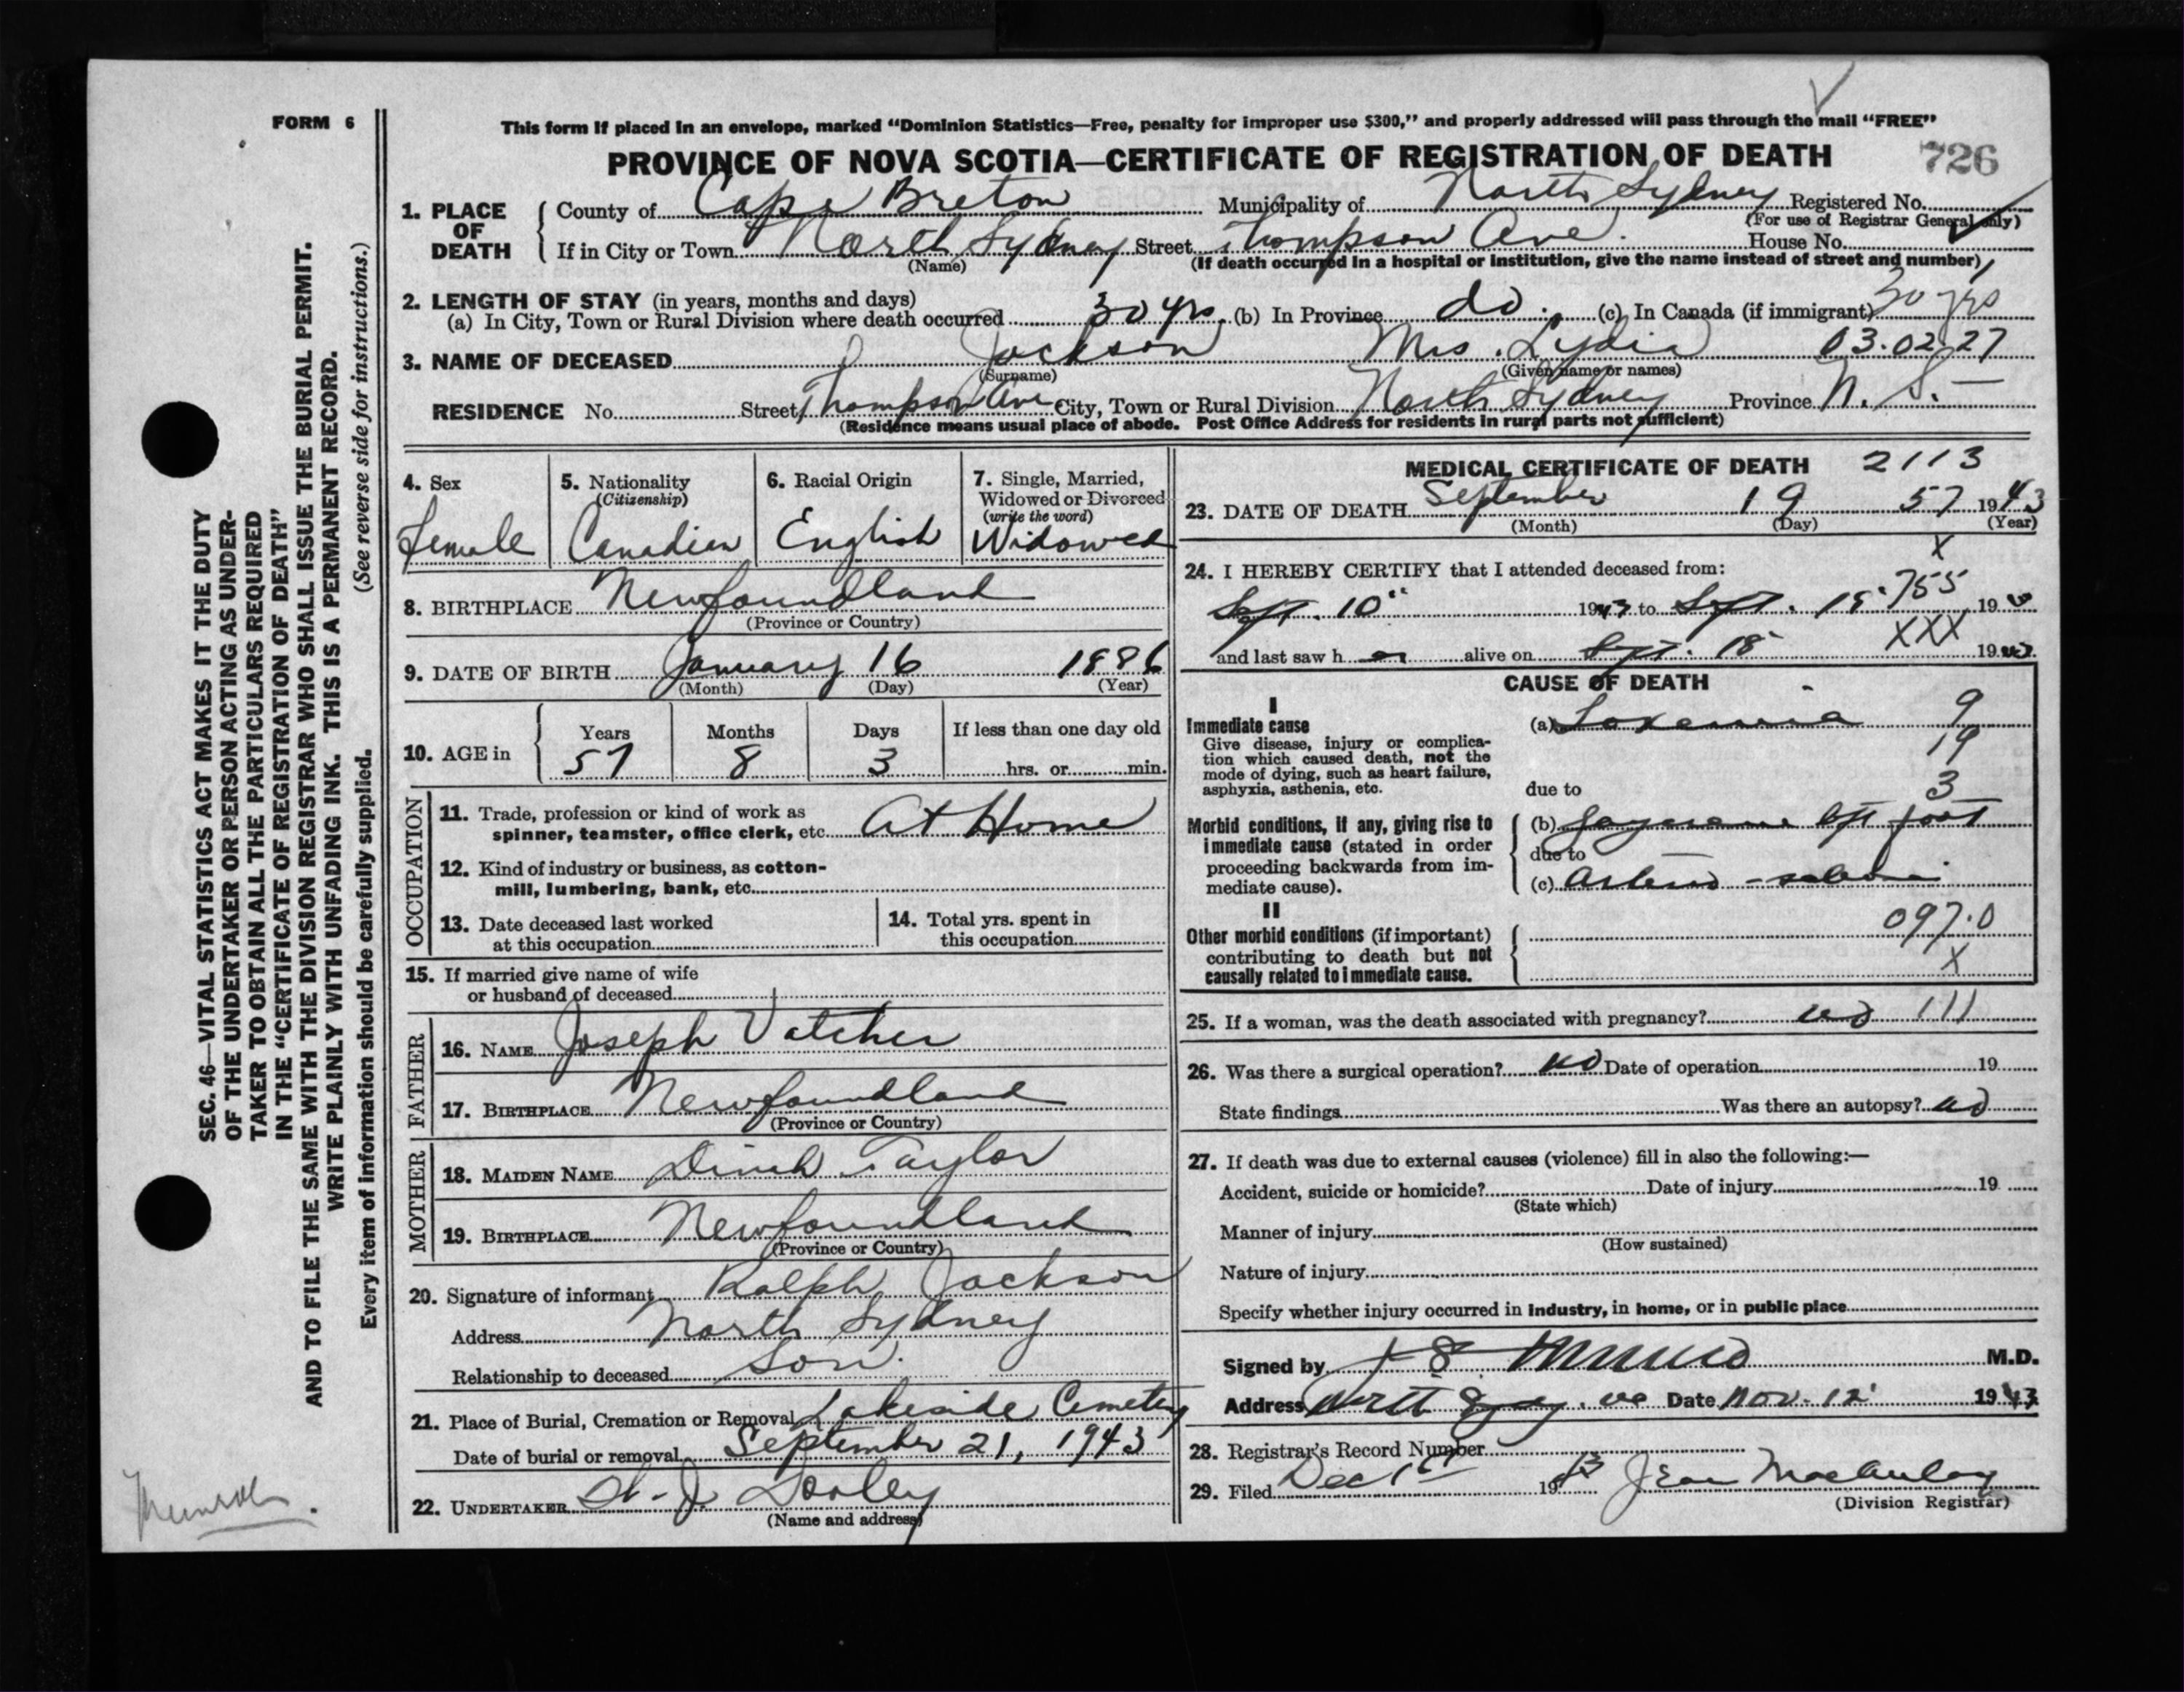 FORM 6
This form if placed in an envelope, marked “Dominion Statistics—Free, penalty for improper use $300,” and properly addressed will pass through the mail “FREE”
PROVINCE OF NOVA SCOTIA—CERTIFICATE OF REGISTRATION OF DEATH 726
1. PLACE OF DEATH
County of Cape Breton Municipality of North Sydney Registered No.
(For use of Registrar General only)
If in City or Town North Sydney Street Thompson Ave. House No.
(Name) (If death occurred in a hospital or institution, give the name instead of street and number)
2. LENGTH OF STAY (in years, months and days)
(a) In City, Town or Rural Division where death occurred 30 yrs. (b) In Province do. (c) In Canada (if immigrant) 30 yrs
3. NAME OF DECEASED Jackson Mrs. Lydia 03.02.27
(Surname) (Given name or names)
RESIDENCE No. Street Thompson Ave City, Town or Rural Division North Sydney Province N. S.
(Residence means usual place of abode. Post Office Address for residents in rural parts not sufficient)
4. Sex Female
5. Nationality (Citizenship) Canadian
6. Racial Origin English
7. Single, Married, Widowed or Divorced (write the word) Widowed
8. BIRTHPLACE Newfoundland
(Province or Country)
9. DATE OF BIRTH January 16 1886
(Month) (Day) (Year)
10. AGE in Years 57 Months 8 Days 3 If less than one day old hrs. or min.
OCCUPATION
11. Trade, profession or kind of work as spinner, teamster, office clerk, etc. At Home
12. Kind of industry or business, as cotton-mill, lumbering, bank, etc.
13. Date deceased last worked at this occupation
14. Total yrs. spent in this occupation
15. If married give name of wife or husband of deceased
FATHER
16. NAME Joseph Vatcher
17. BIRTHPLACE Newfoundland
(Province or Country)
MOTHER
18. MAIDEN NAME Dinah Taylor
19. BIRTHPLACE Newfoundland
(Province or Country)
20. Signature of informant Ralph Jackson
Address North Sydney
Relationship to deceased Son.
21. Place of Burial, Cremation or Removal Lakeside Cemetery
Date of burial or removal September 21, 1943
22. UNDERTAKER Dooley
(Name and address)
MEDICAL CERTIFICATE OF DEATH 2113
23. DATE OF DEATH September 19 57 1943
(Month) (Day) (Year)
X
24. I HEREBY CERTIFY that I attended deceased from:
Sept. 10 1943 to Sept. 18 755 19
XXX
and last saw her alive on Sept. 18 1943
CAUSE OF DEATH
I
Immediate cause (a) Toxemia 9
Give disease, injury or complication which caused death, not the mode of dying, such as heart failure, asphyxia, asthenia, etc. 19
due to 3
Morbid conditions, if any, giving rise to immediate cause (stated in order proceeding backwards from immediate cause).
(b) Gangrene left foot
due to
(c) Arterio-sclerosis
II
Other morbid conditions (if important) contributing to death but not causally related to immediate cause. 097.0
X
25. If a woman, was the death associated with pregnancy? no 111
26. Was there a surgical operation? no Date of operation 19
State findings Was there an autopsy? no
27. If death was due to external causes (violence) fill in also the following:—
Accident, suicide or homicide? Date of injury 19
(State which)
Manner of injury
(How sustained)
Nature of injury
Specify whether injury occurred in industry, in home, or in public place
Signed by Munro M.D.
Address North Sydney Date Nov. 12 1943
28. Registrar's Record Number
29. Filed Dec 1st 1943 Jean MacAulay
(Division Registrar)
SEC. 46—VITAL STATISTICS ACT MAKES IT THE DUTY
OF THE UNDERTAKER OR PERSON ACTING AS UNDER-
TAKER TO OBTAIN ALL THE PARTICULARS REQUIRED
IN THE “CERTIFICATE OF REGISTRATION OF DEATH”
AND TO FILE THE SAME WITH THE DIVISION REGISTRAR WHO SHALL ISSUE THE BURIAL PERMIT.
WRITE PLAINLY WITH UNFADING INK. THIS IS A PERMANENT RECORD.
(See reverse side for instructions.)
Every item of information should be carefully supplied.